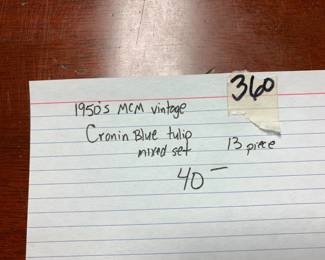 360
1950's MCM vintage
Cronin Blue tulip
mixed set 13 piece
40 —